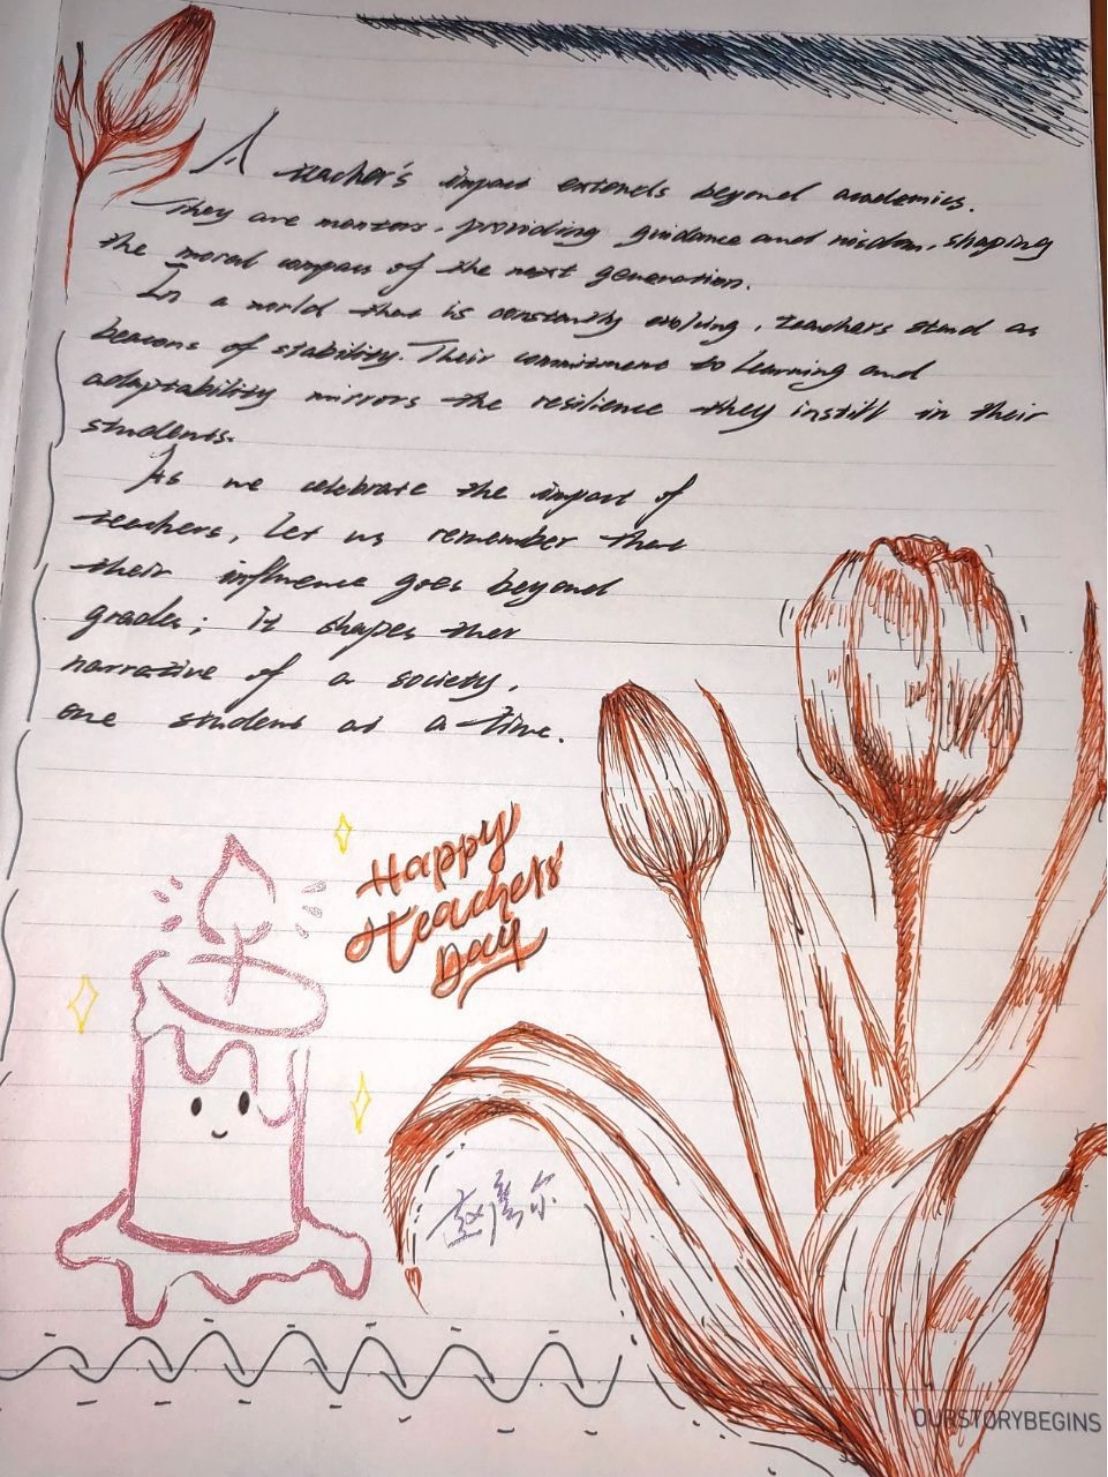 A teacher's impact extends beyond academics.
They are mentors, providing guidance and wisdom, shaping
the moral compass of the next generation.
In a world that is constantly evolving, teachers stand as
beacons of stability. Their commitment to learning and
adaptability mirrors the resilience they instill in their
students.
As we celebrate the impact of
teachers, let us remember that
their influence goes beyond
grades; it shapes ther
narrative of a society,
one student at a time.
Happy
teachers'
Day
OURSTORYBEGINS